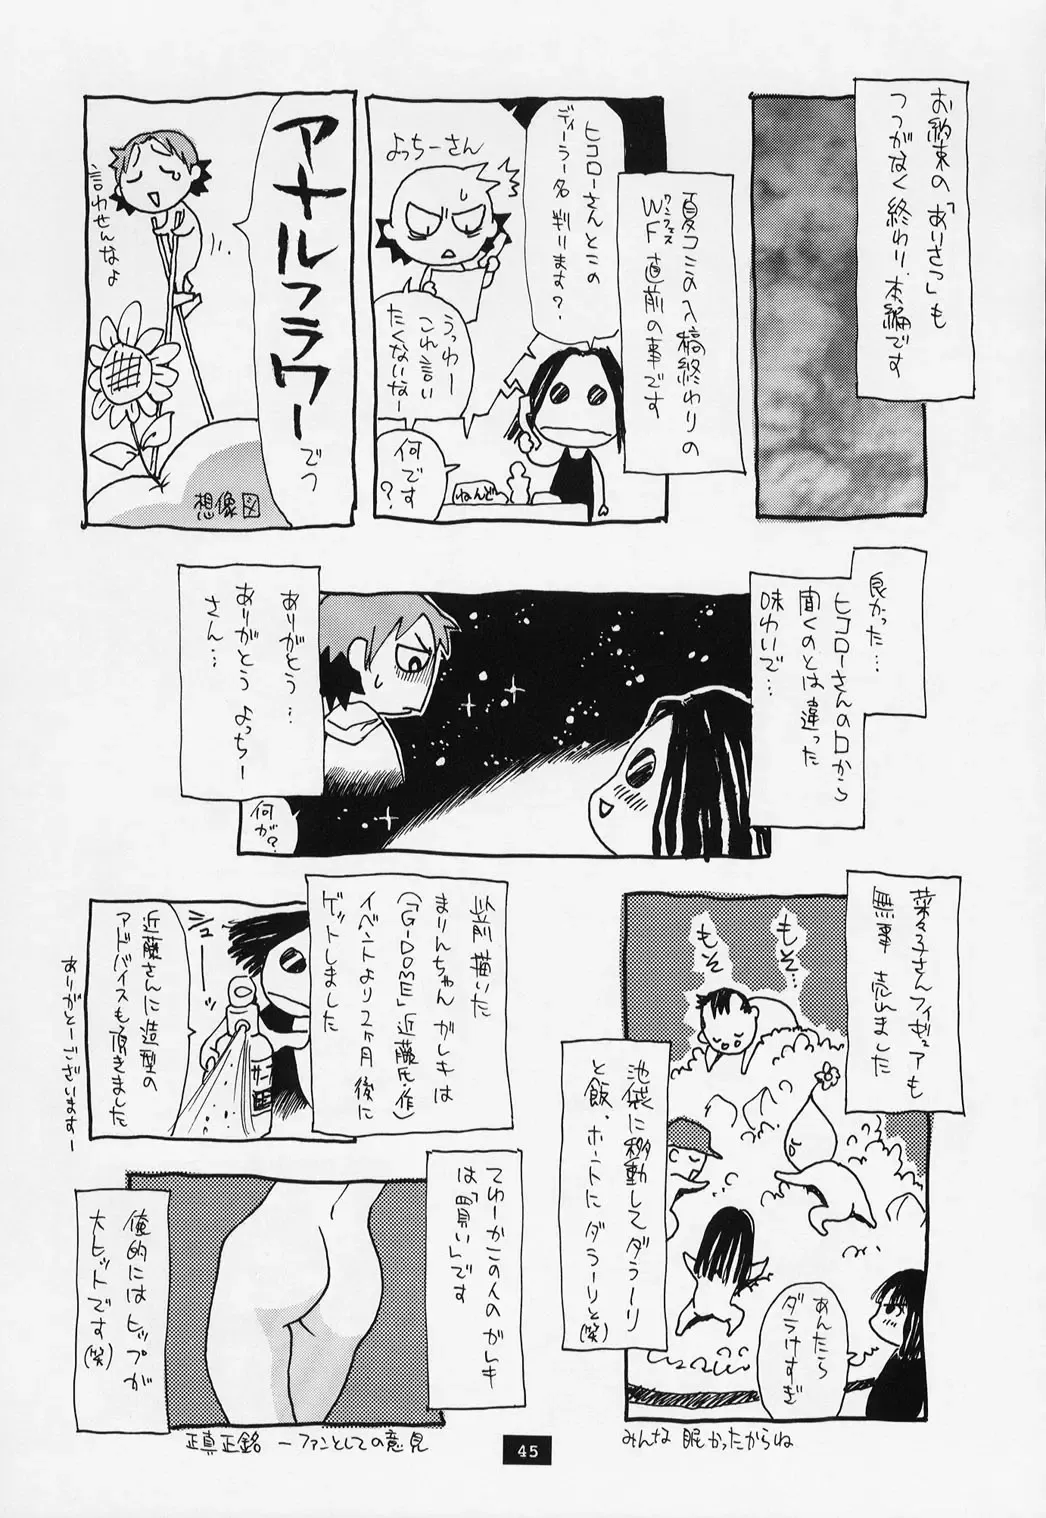 お約束の「あいさつ」も
つつがなく終わり、本編です
夏コミの入稿終わりの
WF直前の事です
ワンフェス
ヒコローさんとこの
ディーラー名判ります?
よっちーさん
うっわー
これ言い
たくないなー
何です
?
ねんど
アナルフラワーでつ
言わせんなよ
想像図
良かった…
ヒコローさんの口から
聞くのとは違った
味わいで…
ありがとう…
ありがとうよっちー
さん…
何が?
菜々子さんフィギュアも
無事売れました
もそ…
もそ
池袋に移動してダラーリ
と飯、ホントにダラーリと(笑)
あんたら
ダラけすぎ
みんな眠かったからね
以前描いた
まりんちゃんガレキは
(「G-DOME」近藤氏・作)
イベントより2ヶ月後に
ゲットしました
ジュー
近藤さんに造型の
アドバイスも頂きました
ありがとーございますー
てゆーかこの人のガレキ
は「買い」です
俺的にはヒップが
大ヒットです(笑)
正真正銘 一ファンとしての意見
45